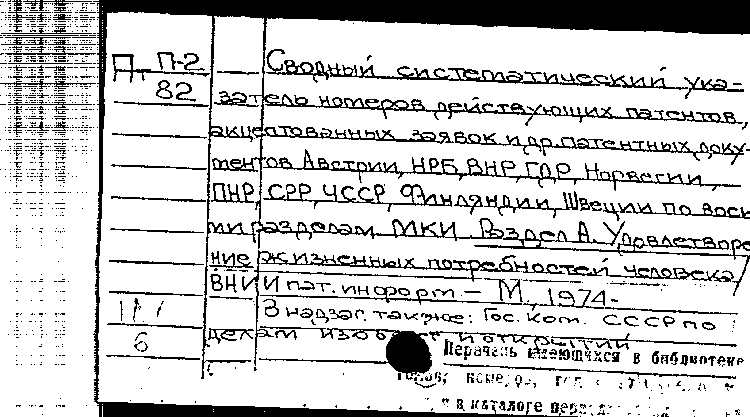 П. П-2
82
Сводный систематический ука-
затель номеров действующих патентов,
акцептованных заявок и др. патентных доку-
ментов Австрии, НРБ, ВНР, ГДР, Норвегии,
ПНР, СРР, ЧССР, Финляндии, Швеции по вось-
ми разделам МКИ. Раздел А. Удовлетворе
ние жизненных потребностей человека/
ВНИИ пат. информ – М, 1974-
В надзаг. также: Гос. ком. СССР по
делам изобрет. и открытий
6
Перечень имеющихся в библиотеке
томов, номеров,
в каталоге